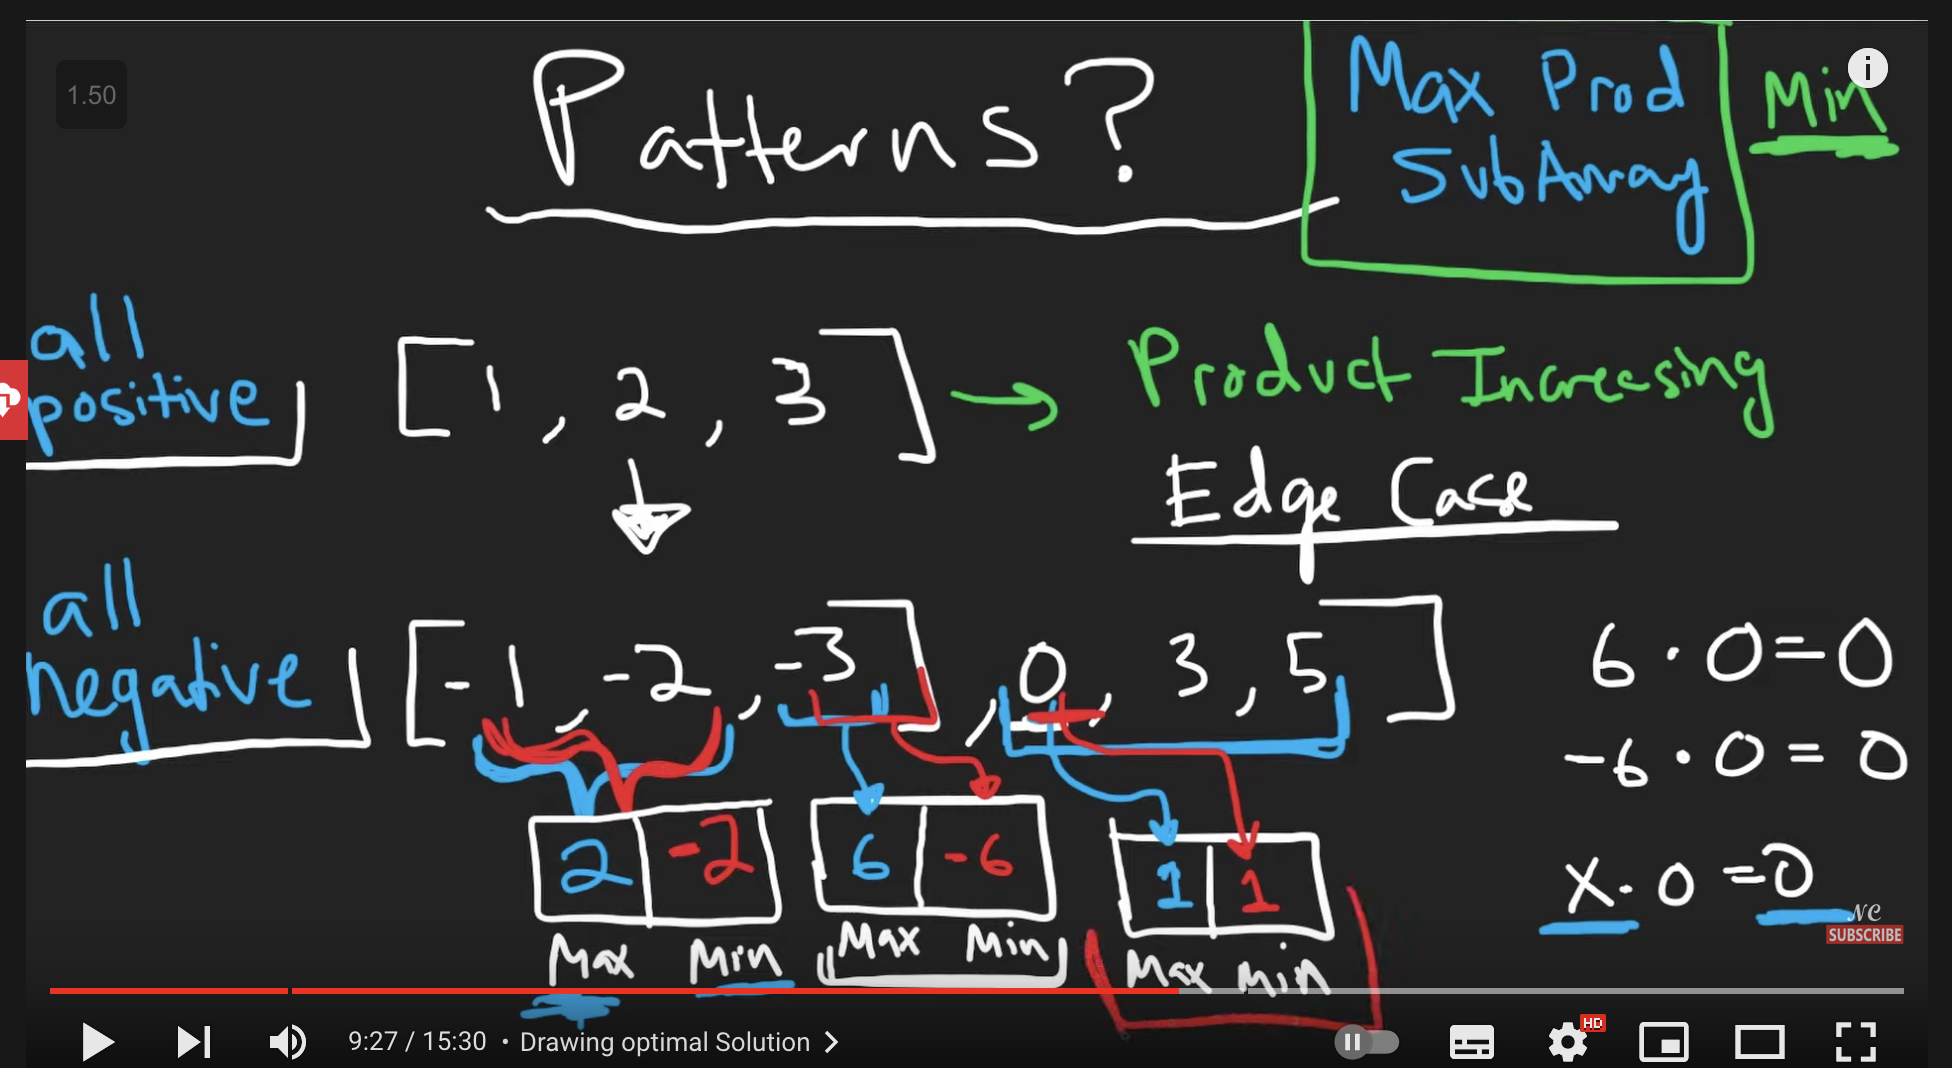 1.50
Patterns?
Max Prod
SubArray
Min
i
all
positive
[1, 2, 3] → Product Increasing
Edge Case
all
negative
[-1, -2, -3], 0, 3, 5]
6 · 0 = 0
-6 · 0 = 0
x · 0 = 0
2 -2
Max Min
6 -6
Max Min
1 1
Max Min
NC
SUBSCRIBE
9:27 / 15:30 • Drawing optimal Solution
HD